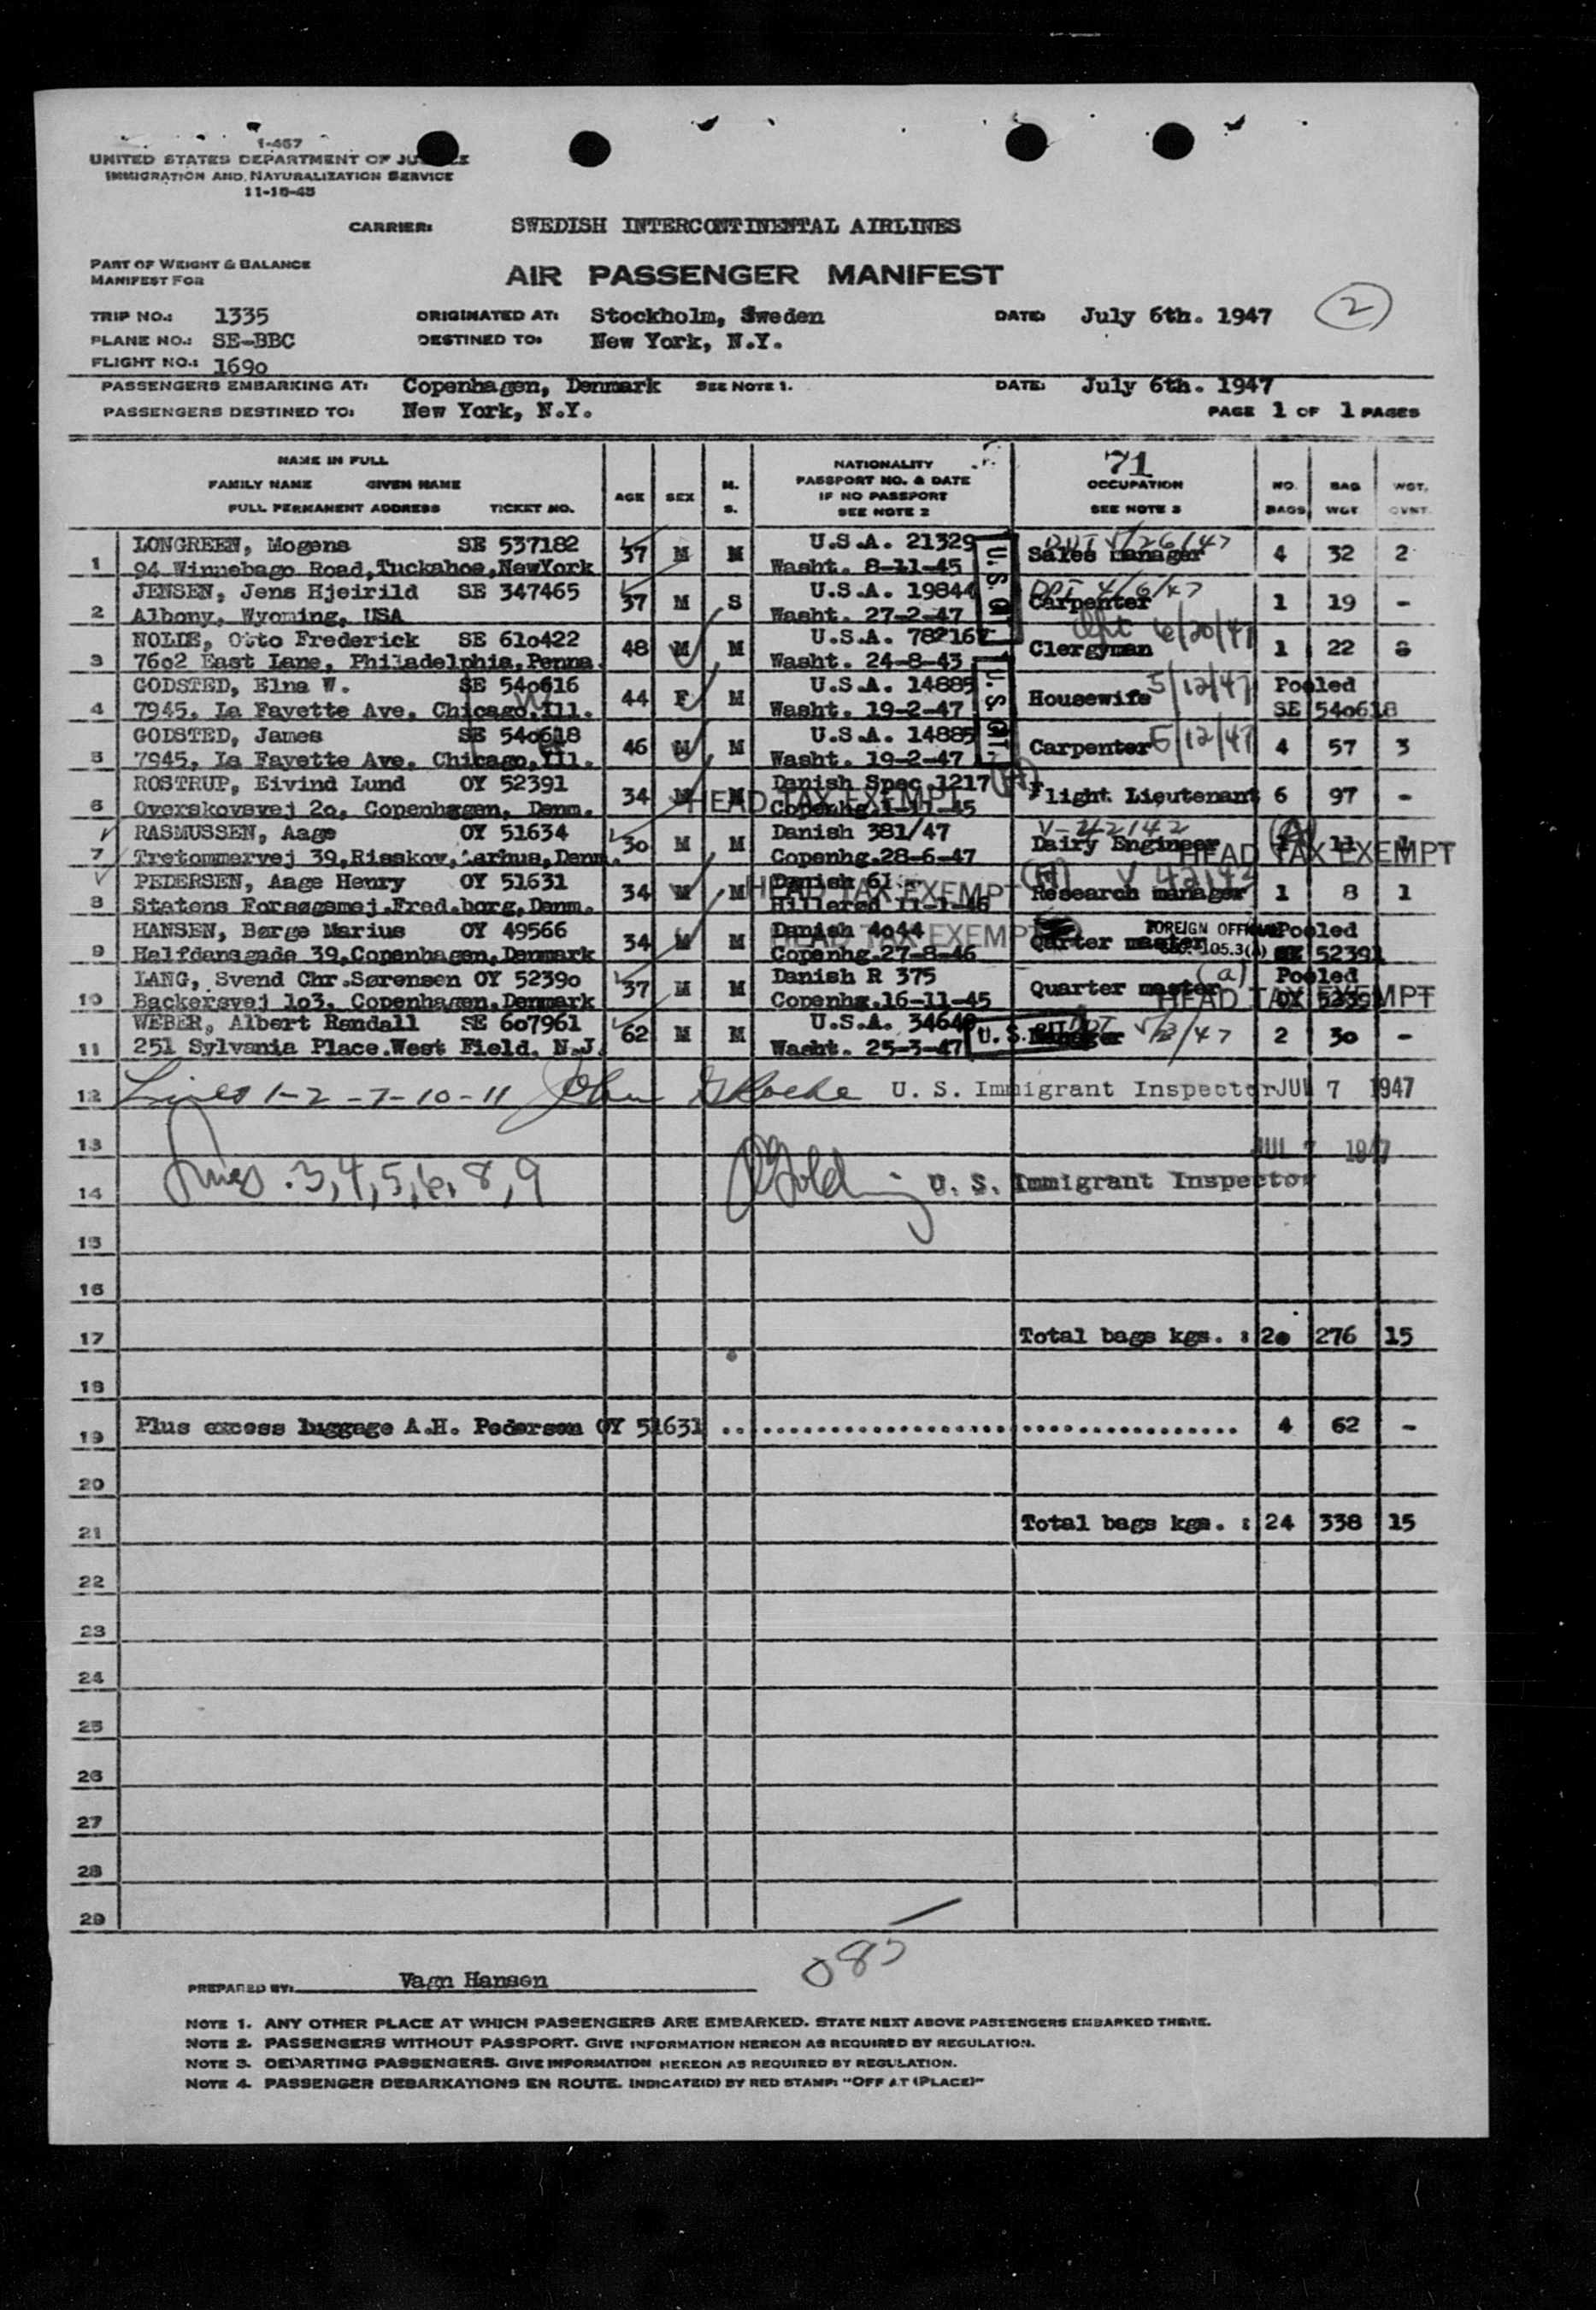 1-467
UNITED STATES DEPARTMENT OF
IMMIGRATION AND NATURALIZATION SERVICE
11-15-45
CARRIER: SWEDISH INTERCONTINENTAL AIRLINES
PART OF WEIGHT & BALANCE
MANIFEST FOR
AIR PASSENGER MANIFEST
TRIP NO.: 1335 ORIGINATED AT: Stockholm, Sweden DATE: July 6th. 1947 2
PLANE NO.: SE-BBC DESTINED TO: New York, N.Y.
FLIGHT NO.: 1690
PASSENGERS EMBARKING AT: Copenhagen, Denmark SEE NOTE 1. DATE: July 6th. 1947
PASSENGERS DESTINED TO: New York, N.Y. PAGE 1 OF 1 PAGES
NAME IN FULL NATIONALITY 71
FAMILY NAME GIVEN NAME M. PASSPORT NO. & DATE OCCUPATION NO. BAG WGT.
AGE SEX IF NO PASSPORT
FULL PERMANENT ADDRESS TICKET NO. S. SEE NOTE 2 SEE NOTE 3 BAGS WGT OVNT.
LONGREEN, Mogens SE 537182 U.S.A. 21329
1 94 Winnebago Road, Tuckahoe, NewYork 37 M M Washt. 8-11-45 Sales manager 4 32 2
JENSEN, Jens Hjeirild SE 347465 U.S.A. 19844
2 Albony, Wyoming, USA 37 M S Washt. 27-2-47 Carpenter 1 19 -
NOLDE, Otto Frederick SE 610422 U.S.A. 78216
3 7602 East Lane, Philadelphia, Penna. 48 M M Washt. 24-8-43 Clergyman 6/20/47 1 22
GODSTED, Elna W. SE 540616 U.S.A. 14885 Pooled
4 7945, La Fayette Ave. Chicago, Ill. 44 F M Washt. 19-2-47 Housewife 5/12/47 SE 540618
GODSTED, James SE 540618 U.S.A. 14885
5 7945, La Fayette Ave. Chicago, Ill. 46 M M Washt. 19-2-47 Carpenter 5/12/47 4 57 3
ROSTRUP, Eivind Lund OY 52391 Danish Spec. 1217
6 Overskovsvej 20, Copenhagen, Denm. 34 M M HEAD TAX EXEMPT Flight Lieutenant 6 97 -
RASMUSSEN, Aage OY 51634 Danish 381/47 V-42142
7 Tretommervej 39, Risskov, Aarhus, Denm. 30 M M Copenhg. 28-6-47 Dairy Engineer 11 HEAD TAX EXEMPT
PEDERSEN, Aage Henry OY 51631 Danish 61
8 Statens Forsøgsmej. Fred.borg, Denm. 34 M M Hillerød 11-1-46 HEAD TAX EXEMPT Research manager 1 8 1
HANSEN, Børge Marius OY 49566 Danish 4044 FOREIGN Pooled
9 Halfdansgade 39, Copenhagen, Denmark 34 M M Copenhg. 27-8-46 HEAD TAX EXEMPT Quarter master 105.3(A) 52391
LANG, Svend Chr. Sørensen OY 52390 Danish R 375 (a) Pooled
10 Backersvej 103, Copenhagen, Denmark 37 M M Copenhg. 16-11-45 Quarter master HEAD TAX EXEMPT
WEBER, Albert Randall SE 607961 U.S.A. 34640
11 251 Sylvania Place. West Field, N.J. 62 M M Washt. 25-3-47 Manager 2 30 -
12 Lines 1-2-7-10-11 U. S. Immigrant Inspector JUL 7 1947
13 JUL 7 1947
14 Lines. 3,4,5,6,8,9 U. S. Immigrant Inspector
15
16
17 Total bags kgs. : 20 276 15
18
19 Plus excess luggage A.H. Pedersen OY 51631 4 62 -
20
21 Total bags kgs. : 24 338 15
22
23
24
25
26
27
28
29
PREPARED BY: Vagn Hansen
NOTE 1. ANY OTHER PLACE AT WHICH PASSENGERS ARE EMBARKED. STATE NEXT ABOVE PASSENGERS EMBARKED THERE.
NOTE 2. PASSENGERS WITHOUT PASSPORT. GIVE INFORMATION HEREON AS REQUIRED BY REGULATION.
NOTE 3. DEPARTING PASSENGERS. GIVE INFORMATION HEREON AS REQUIRED BY REGULATION.
NOTE 4. PASSENGER DEBARKATIONS EN ROUTE. INDICATE(D) BY RED STAMP: "OFF AT (PLACE)"